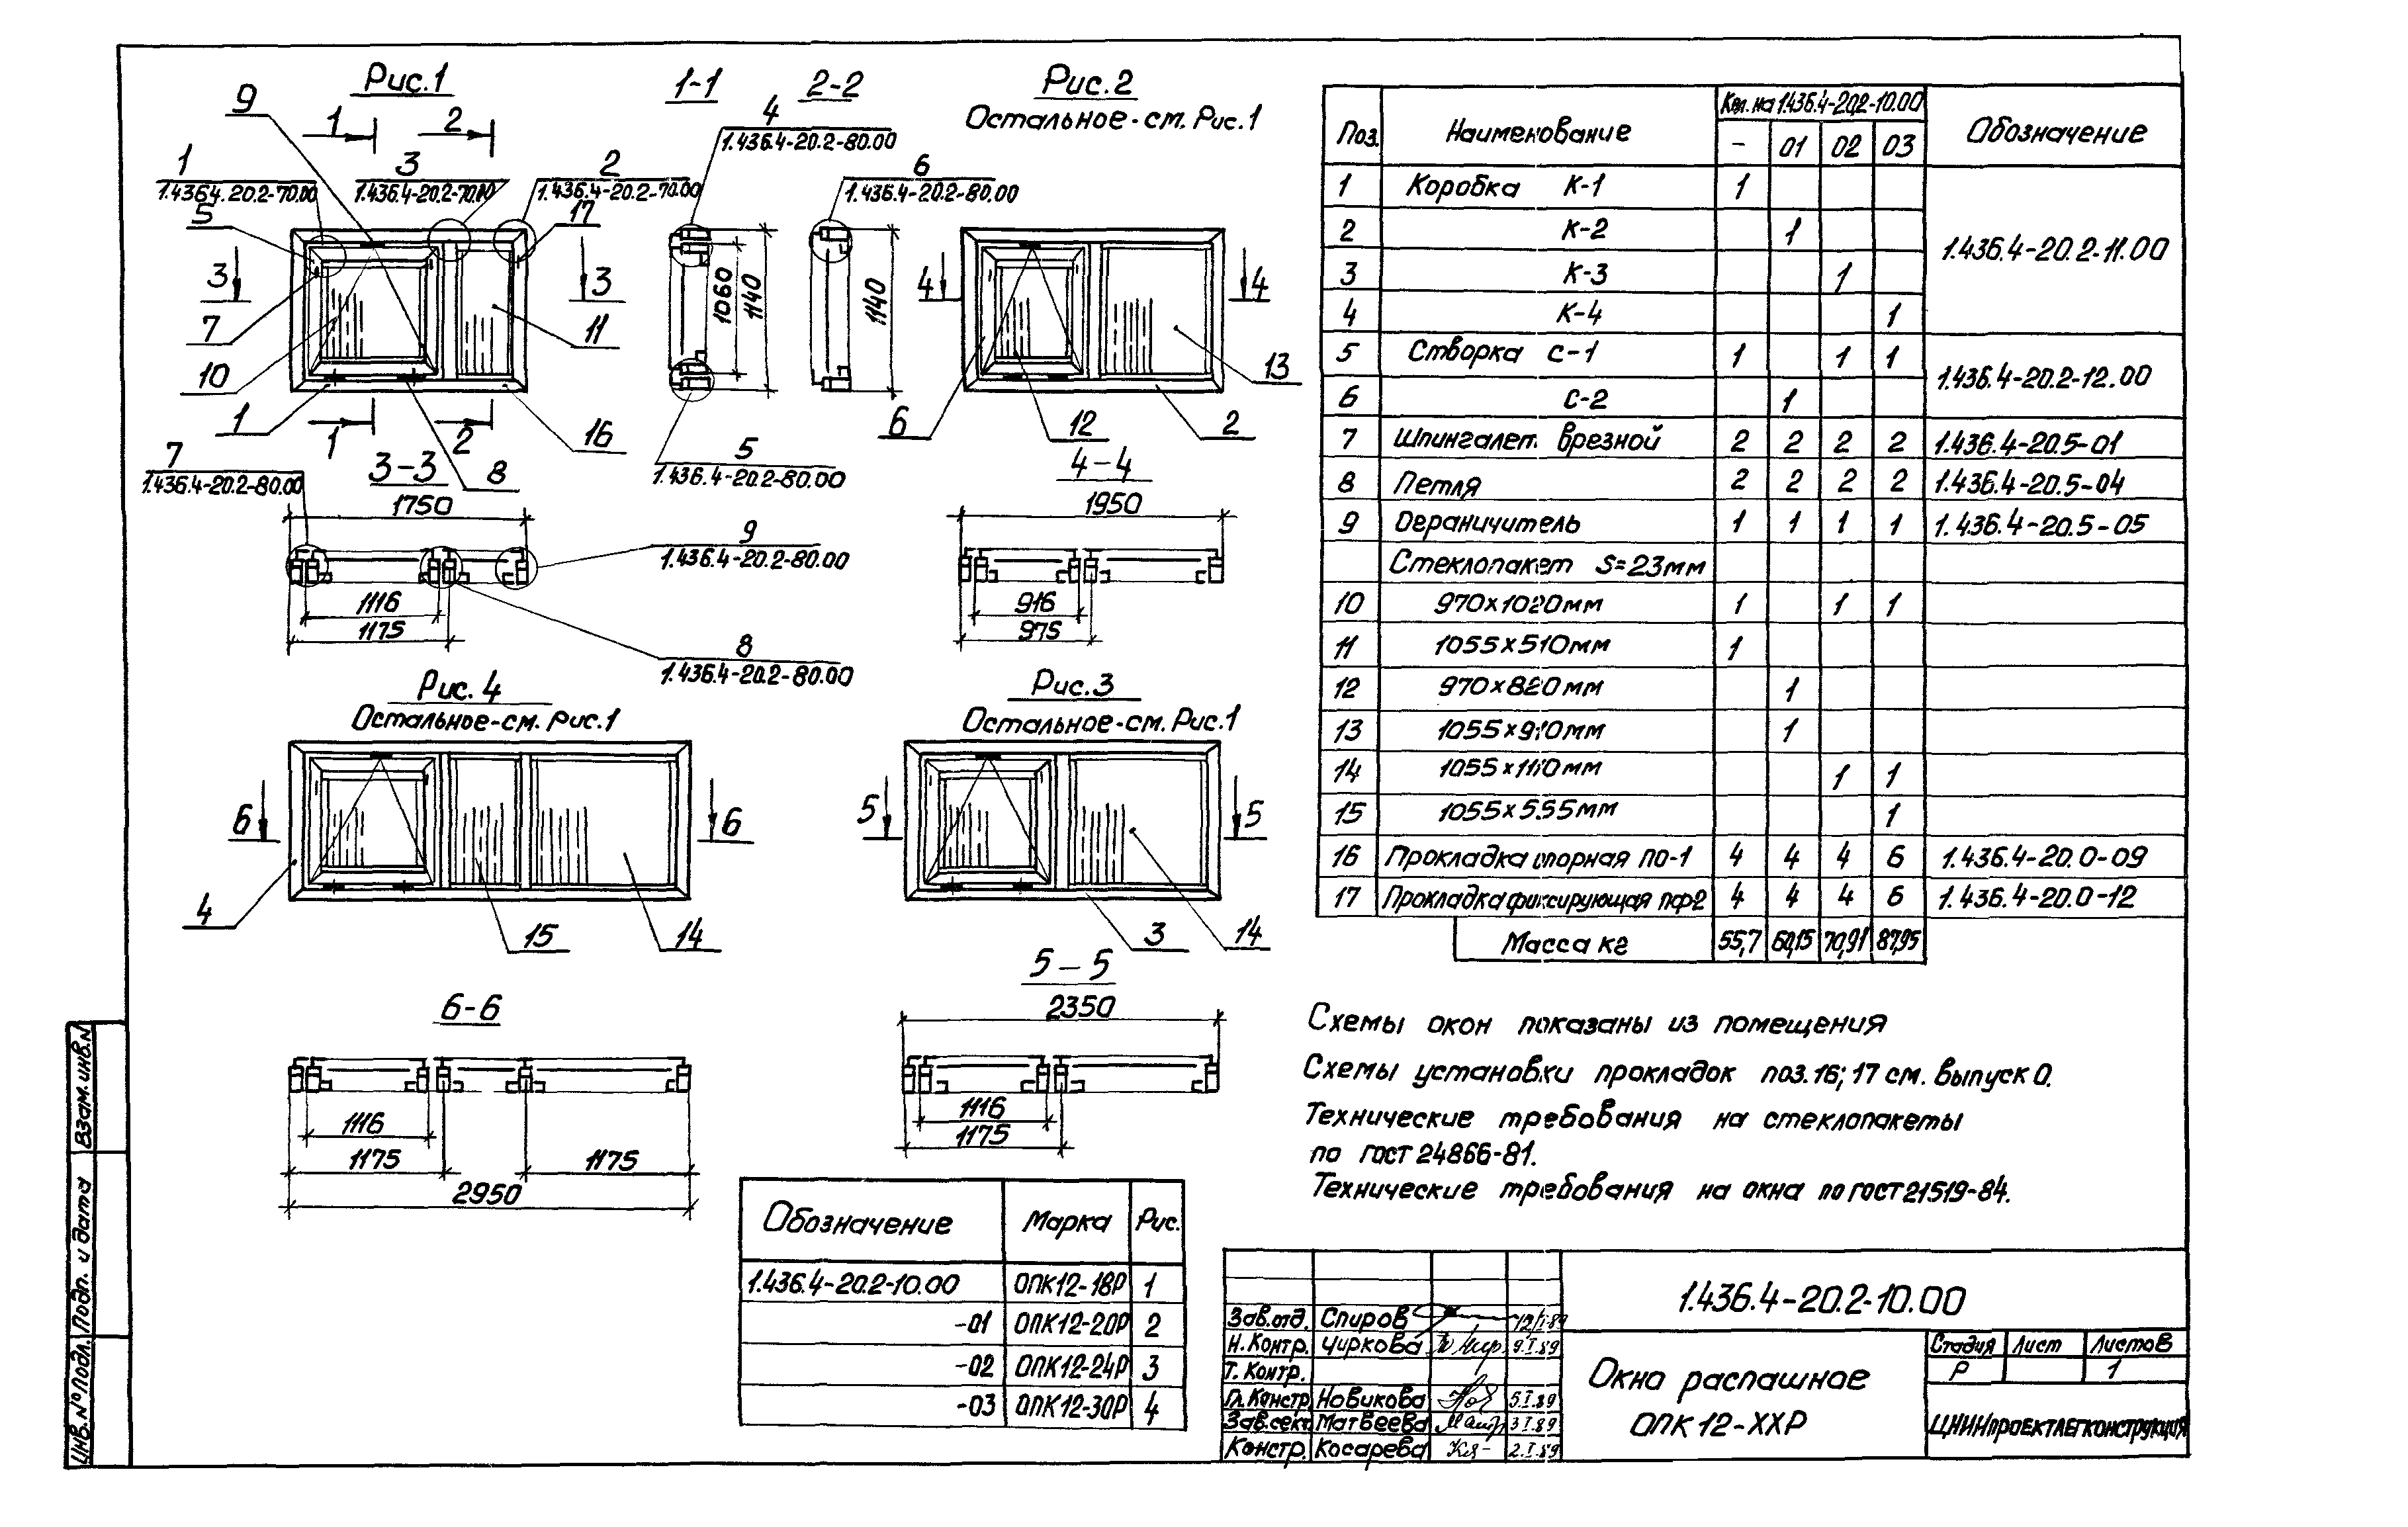 Рис.1
1-1
2-2
Рис.2
Остальное-см. Рис.1
9
1
2
4
1.436.4-20.2-80.00
1
1.436.4.20.2-70.00
3
1.436.4-20.2-70.00
2
1.436.4-20.2-70.00
6
1.436.4-20.2-80.00
5
17
3
3
7
10
11
1
1
2
16
8
1060
1140
1140
4
4
13
6
12
2
5
1.436.4-20.2-80.00
7
1.436.4-20.2-80.00
3-3
1750
1116
1175
9
1.436.4-20.2-80.00
8
1.436.4-20.2-80.00
4-4
1950
916
975
Рис. 4
Остальное-см. Рис.1
6
6
4
15
14
Рис.3
Остальное-см. Рис.1
5
5
3
14
6-6
1116
1175
1175
2950
5-5
2350
1116
1175
Поз. Наименование Кол. на 1.436.4-20.2-10.00 Обозначение
- 01 02 03
1 Коробка К-1 1
2 К-2 1 1.436.4-20.2-11.00
3 К-3 1
4 К-4 1
5 Створка С-1 1 1 1 1.436.4-20.2-12.00
6 С-2 1
7 Шпингалет врезной 2 2 2 2 1.436.4-20.5-01
8 Петля 2 2 2 2 1.436.4-20.5-04
9 Ограничитель 1 1 1 1 1.436.4-20.5-05
Стеклопакет S=23мм
10 970х1020мм 1 1 1
11 1055х510мм 1
12 970х820мм 1
13 1
14 1 1
15 1
16 Прокладка опорная ПО-1 4 4 4 6 1.436.4-20.0-09
17 Прокладка фиксирующая ПФ2 4 4 4 6 1.436.4-20.0-12
Масса кг 55,7 60,15 70,91 87,95
Схемы окон показаны из помещения
Схемы установки прокладок поз.16; 17 см. выпуск 0.
Технические требования на стеклопакеты
по ГОСТ 24866-81.
Технические требования на окна по ГОСТ 21519-84.
Обозначение Марка Рис.
1.436.4-20.2-10.00 ОПК12-18Р 1
-01 ОПК12-20Р 2
-02 ОПК12-24Р 3
-03 ОПК12-30Р 4
1.436.4-20.2-10.00
Зав.отд. Спиров
Н.Контр. Чиркова 9.I.89
Т. Контр.
Гл.Констр Новикова 5.I.89
Зав.сект. Матвеева 3.I.89
Констр. Косарева 2.I.89
Окно распашное
ОПК 12-ХХР
Стадия Лист Листов
Р 1
ЦНИИпроектлегконструкция
Взам.инв.№
Подп. и дата
Инв.№ подл.